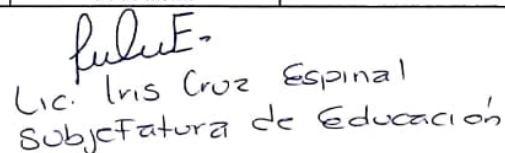 Lic. Iris Cruz Espinal
Subjefatura de Educación